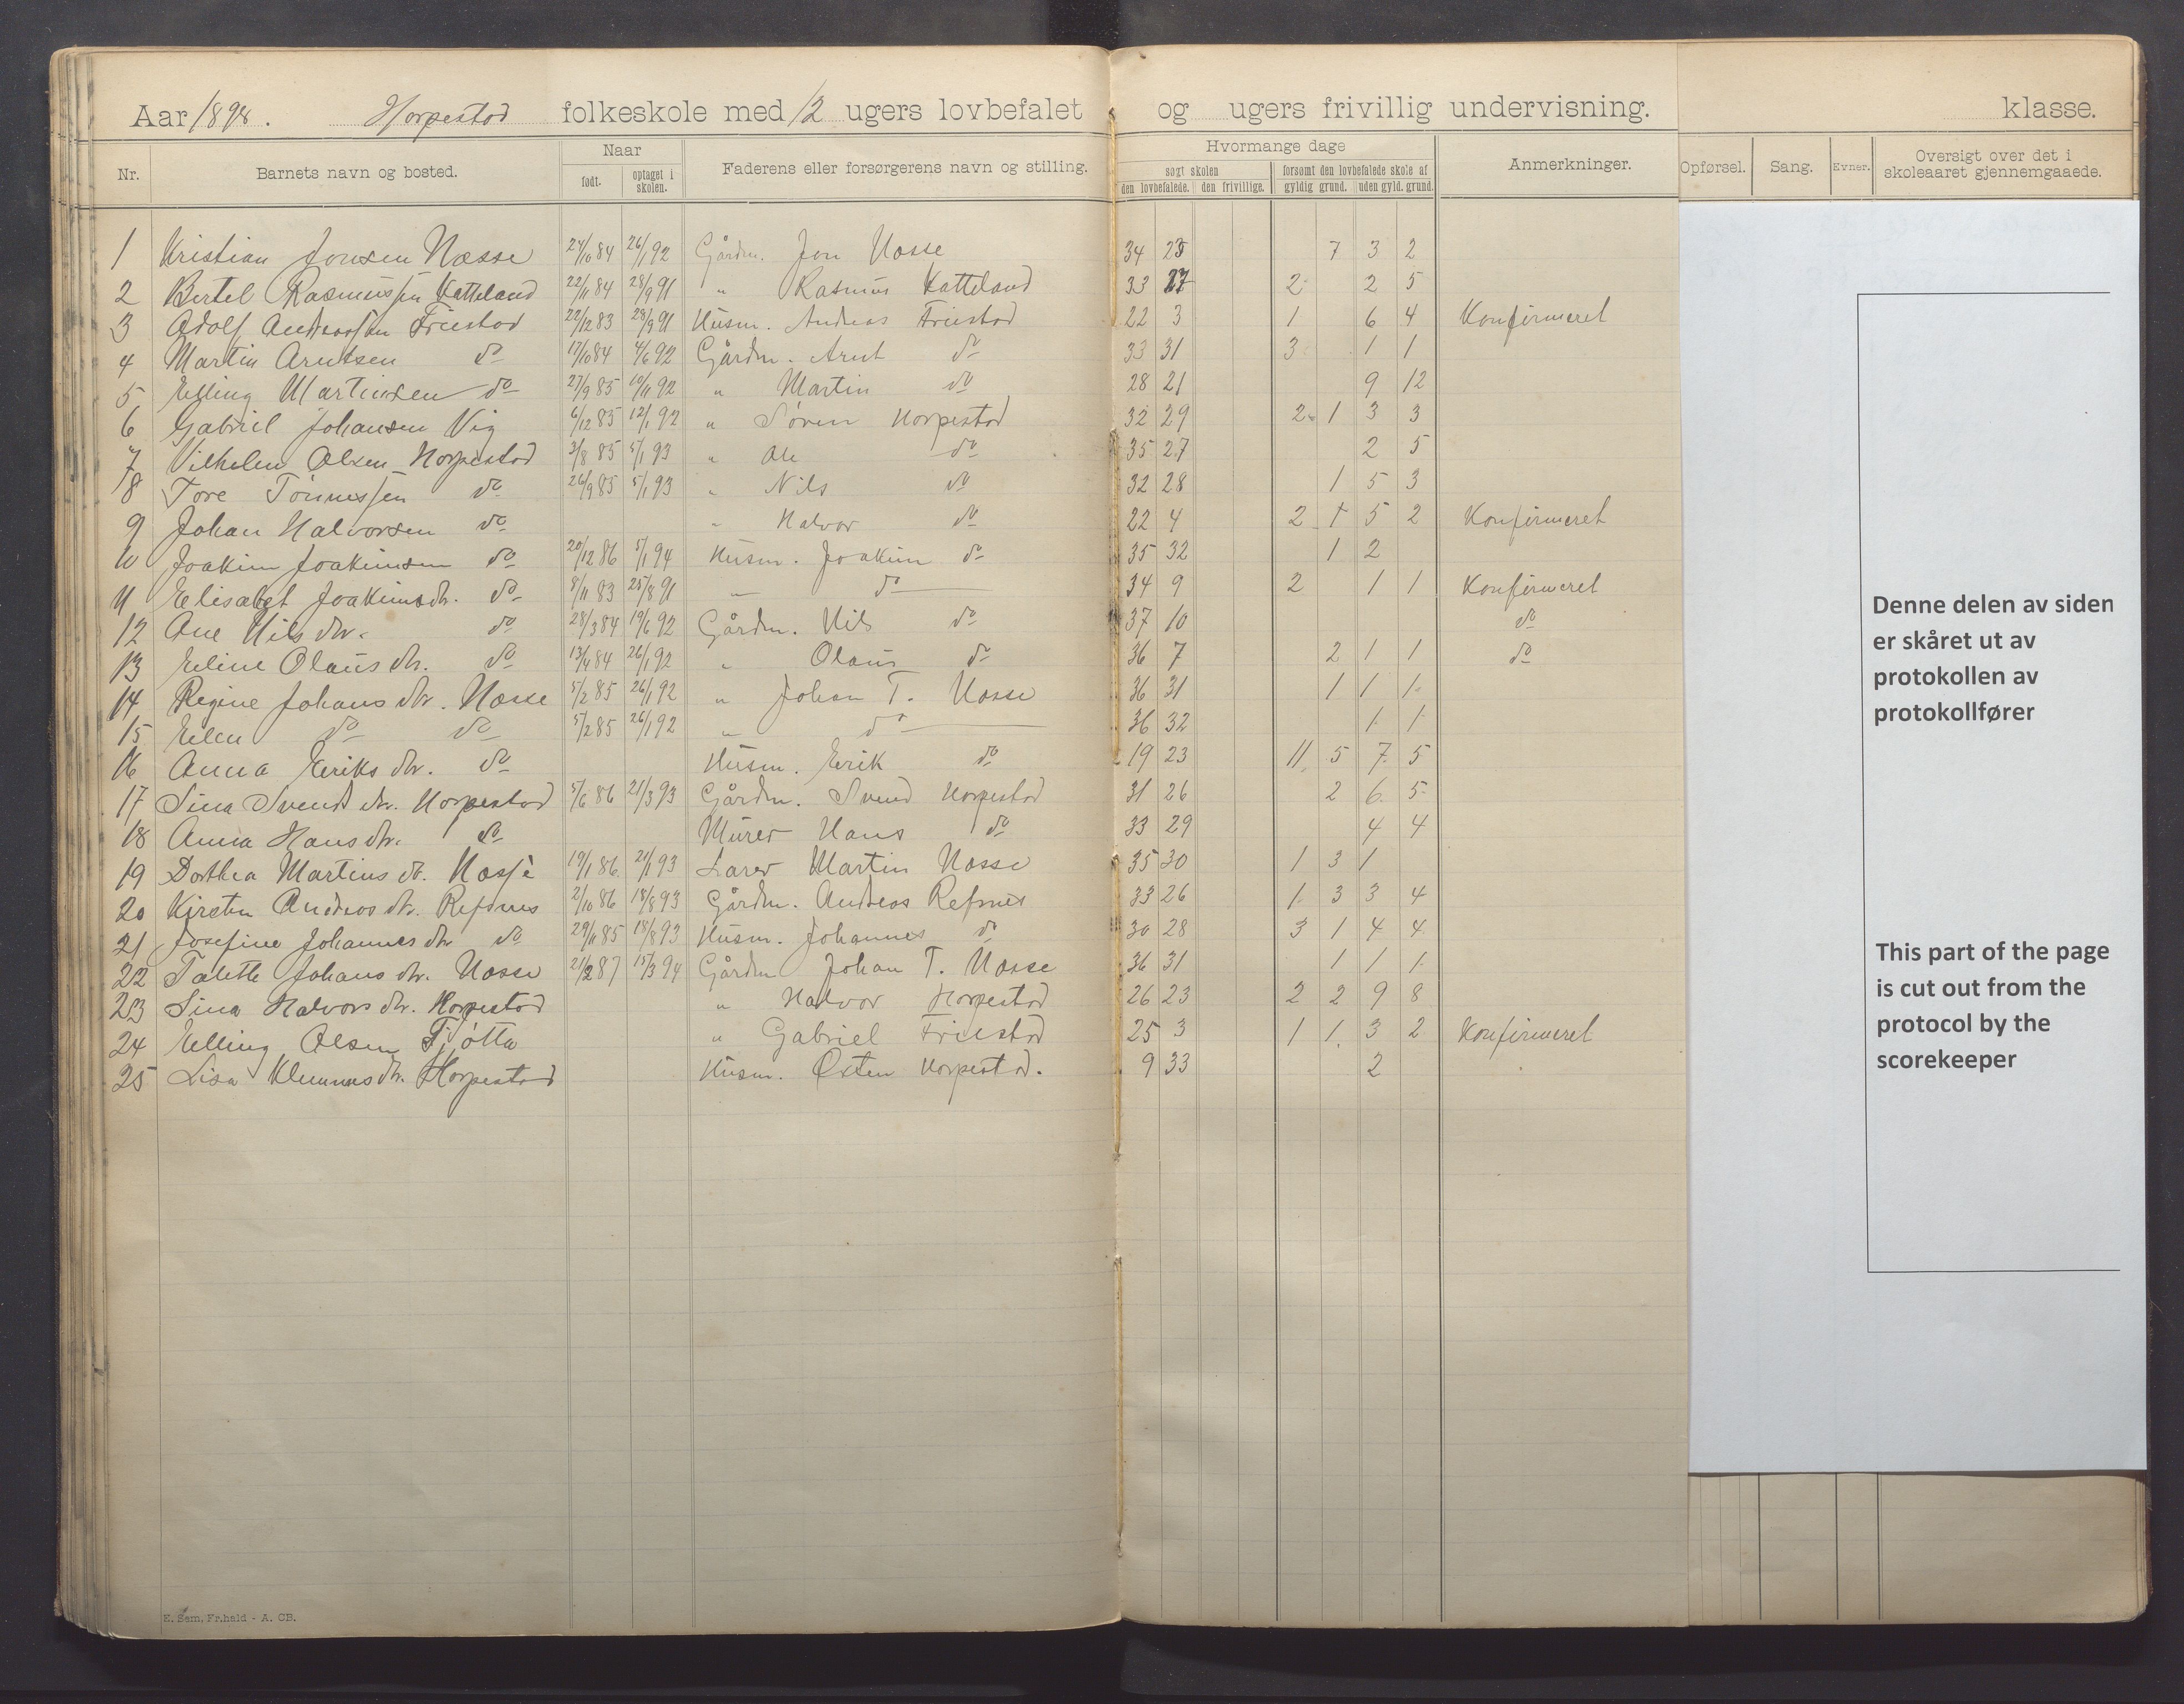 Aar 1898. Horpestad folkeskole med 12 ugers lovbefalet og ugers frivillig undervisning. klasse.
Nr. Barnets navn og bosted. Naar født. optaget i skolen. Faderens eller forsørgerens navn og stilling. Hvormange dage søgt skolen den lovbefalede. den frivillige. forsømt den lovbefalede skole af gyldig grund. uden gyld. grund. Anmerkninger. Opførsel. Sang. Evner. Oversigt over det i skoleaaret gjennemgaaede.
1 Kristian Jonsen Næsse 24/10 84 26/1 92 Gårdm. Jon Næsse 34 25 7 3 2
2 Bertel Rasmussen Katteland 22/11 84 28/9 91 " Rasmus Katteland 33 27 2 2 5
3 Adolf Andreassen Friestad 22/12 83 28/9 91 Husm. Andreas Friestad 22 3 1 6 4 Konfirmeret
4 Martin Arntsen do 17/10 84 4/6 92 Gårdm. Arnt do 33 31 3 1 1
5 Elling Martinsen do 27/9 85 10/11 92 " Martin do 28 21 9 12
6 Gabriel Johansen Vig 6/12 85 12/1 92 " Søren Horpestad 32 29 2 1 3 3
7 Vilhelm Olsen Horpestad 3/8 85 5/1 93 " Ole do 35 27 2 5
8 Tore Tønnessen do 26/9 85 5/1 93 " Nils do 32 28 1 5 3
9 Johan Halvorsen do " Halvor do 22 4 2 1 5 2 Konfirmeret
10 Joakim Joakimsen do 20/12 86 5/1 94 Husm. Joakim do 35 32 1 2
11 Elisabet Joakimsdr. do 8/11 83 25/8 91 " do 34 9 2 1 1 Konfirmeret
12 Ane Nilsdr. do 28/3 84 19/6 92 Gårdm. Nils do 37 10 do
13 Eline Olausdr. do 13/4 84 26/1 92 " Olaus do 36 7 2 1 1 do
14 Regine Johansdr. Næsse 5/2 85 26/1 92 " Johan T. Næsse 36 31 1 1 1
15 Elen do do 5/2 85 26/1 92 " do 36 32 1 1
16 Anna Eriksdr. do Husm. Erik do 19 23 11 5 7 5
17 Sina Svendsdr. Horpestad 5/6 86 21/3 93 Gårdm. Svend Horpestad 31 26 2 6 5
18 Anna Hansdr. do Murer Hans do 33 29 4 4
19 Dorthea Martinsdr. Næsse 19/1 86 20/1 93 Lærer Martin Næsse 35 30 1 3 1
20 Kirsten Andreasdr. Refsnes 2/10 86 18/8 93 Gårdm. Andreas Refsnes 33 26 1 3 3 4
21 Josefine Johannesdr do 29/11 85 18/8 93 Husm. Johannes do 30 28 3 1 4 4
22 Talette Johansdr. Næsse 21/2 87 15/3 94 Gårdm Johan T. Næsse 36 31 1 1 1
23 Sina Halvorsdr. Horpestad " Halvor Horpestad 26 23 2 2 9 8
24 Elling Olsen Tjøtta " Gabriel Friestad 25 3 1 1 3 2 Konfirmeret
25 Lisa Klemmsdr. Horpestad Husm. Østen Horpestad. 9 33 2
Denne delen av siden
er skåret ut av
protokollen av
protokollfører
This part of the page
is cut out from the
protocol by the
scorekeeper
E. Sem, Fr.hald - A. CB.